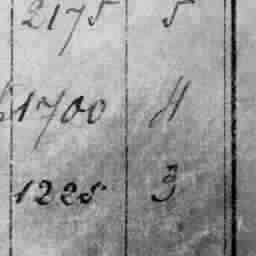 2175 5
1700 4
1225 3